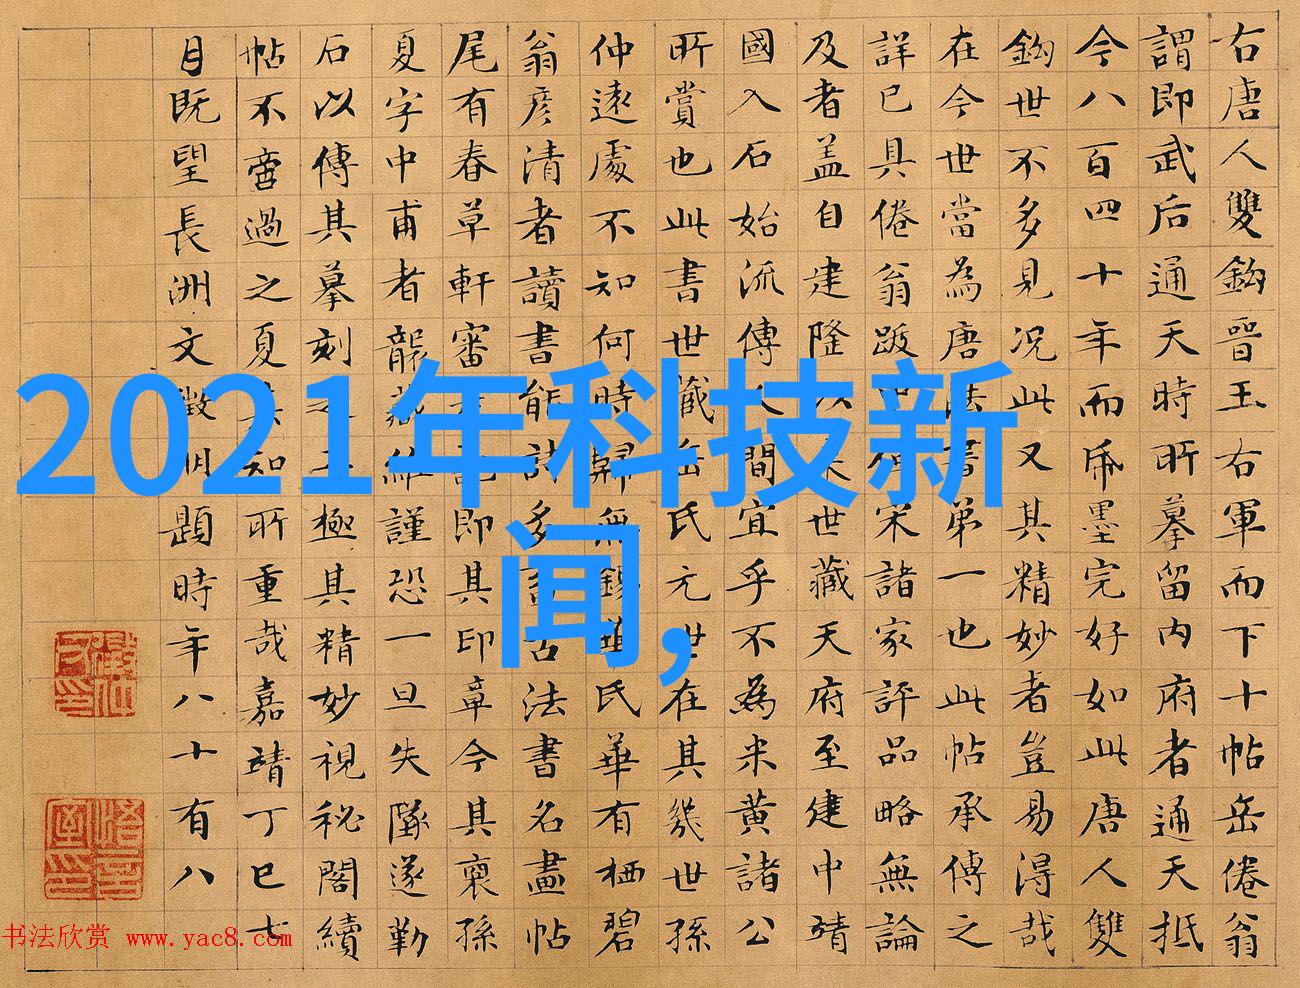 右唐人雙鈎晉王右軍而下十帖岳倦翁
謂即武后通天時所摹留內府者通天抵
今八百四十年而帋墨完好如此唐人雙
鈎世不多見況此又其精妙者豈易得哉
在今世當為唐法書第一也此帖承傳之
詳已具倦翁跋宋諸家評品略無論
及者盖自建隆以來世藏天府至建中靖
國入石始流傳人間宜乎不為米黃諸公
所賞也此書世藏岳氏元世在其幾世孫
仲遠處不知何時歸無錫華氏華有栖碧
翁彦清者讀書能詩多蓄古法書名畫帖
尾有春草軒審即其印章今其裔孫
夏字中甫者襲藏維謹恐一旦失墜遂勒
石以傳其摹刻之工極其精妙視秘閣續
帖不啻過之夏其知所重哉嘉靖丁巳七
月既望長洲文徵明題時年八十有八
2021年科技新
闻,
悟言室印
书法欣赏 www.yac8.com